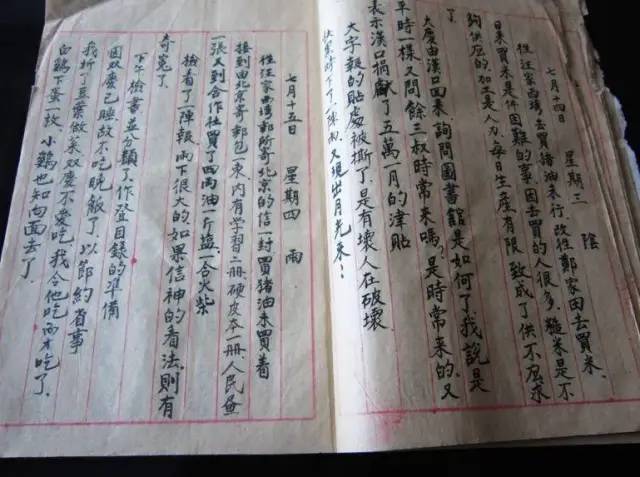 七月十四日 星期三 陰
往汪家西湾去買猪油未行.改往鄭家田去買米.
日来買米是件困難的事因去買的人很多.糙米是不
夠供应的加工是人力.每日生產有限.致成了供不应求
了
大慶由漢口回来.詢問圖書館是如何了.我說是
平時樣.又問餘三叔時常来嗎?是時常来的.又
表示漢口捐獻了五萬一月的津貼
大字報的貼處被撕了是有壞人在破壞
又現出月光来!
七月十五日 星期四 雨
往汪家西湾郵所寄北京的信一封.買猪油未買着
接到由北京寄郵包一束內有学習二册.硬皮本一册.人民
一張.又到合作社買了四両油一斤塩一合火柴
檢看了一陣報.雨下很大的如果信神的看法.則有
奇冤了
下午檢書並分類了作登目録的準備
因双慶已睡故不吃晚飯了.以節約省事
我折了豆葉做菜双慶不愛吃.我令他吃而才吃了.
白鷄下蛋一枚.小鷄也知向面去了.